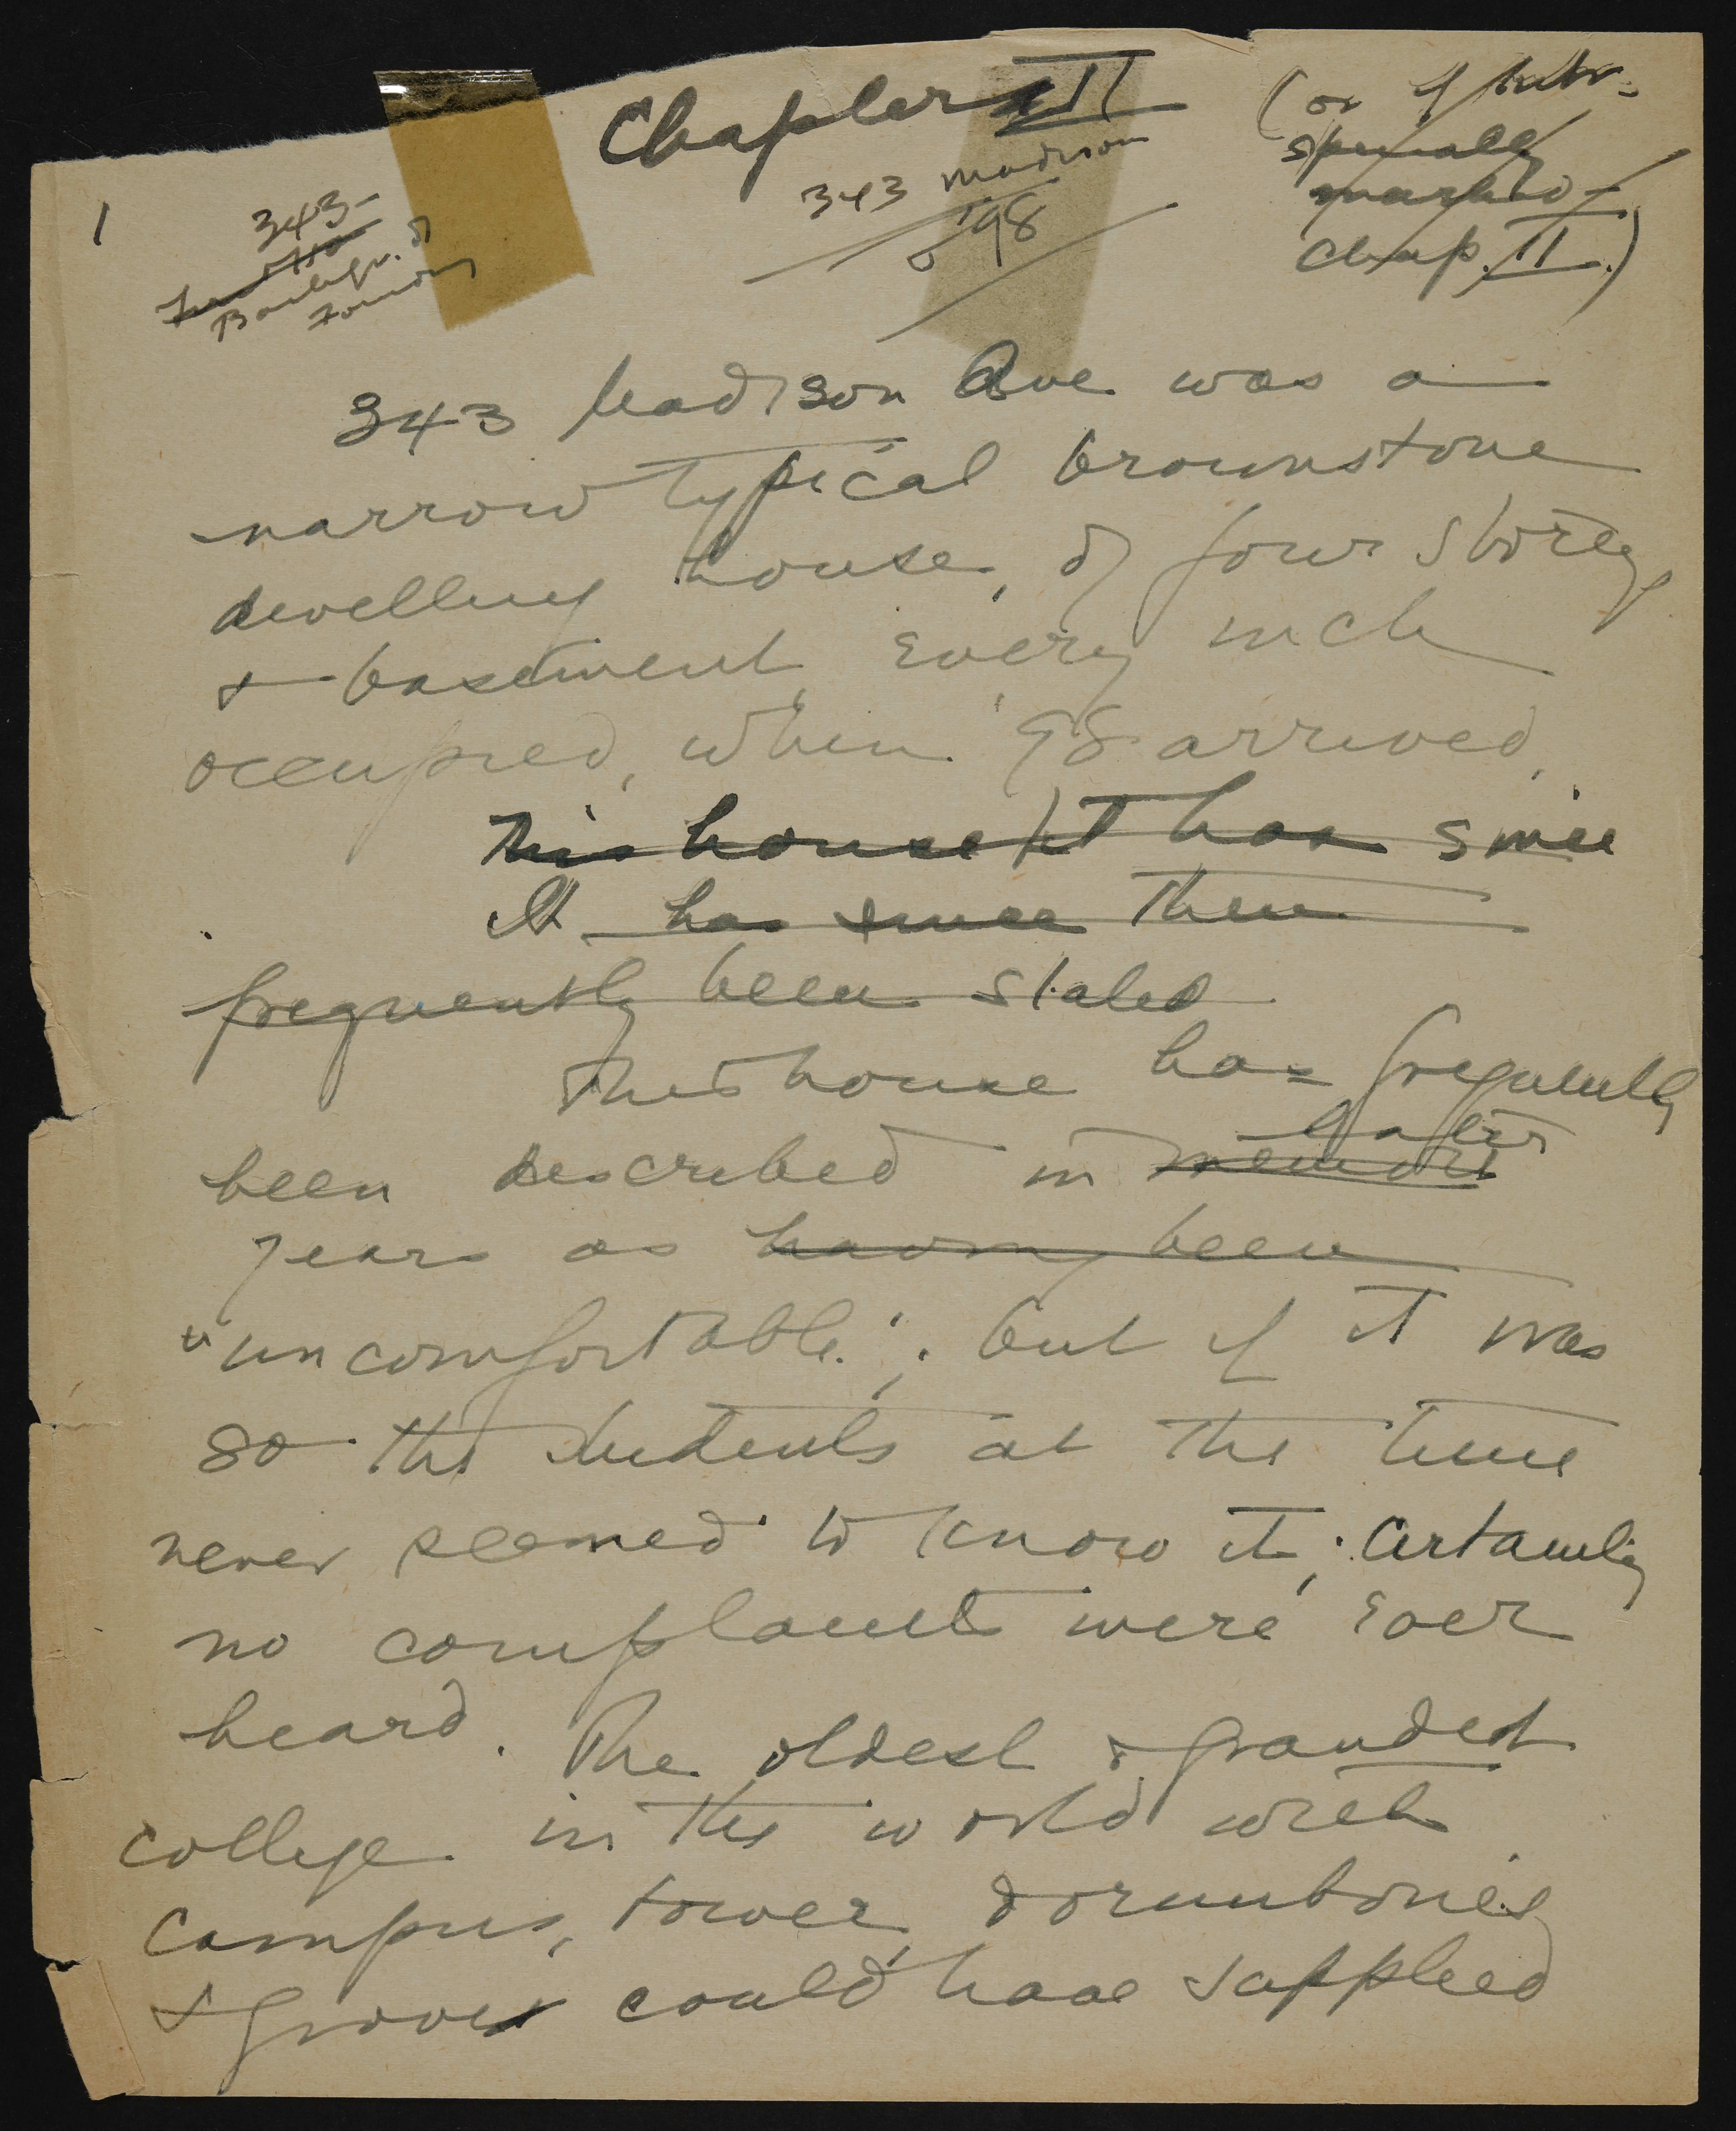 Chapter II
(or if intr-
specially
marked -
Chap. II.)
1
343-
of
343 Madison
'98
343 Madison Ave was a
narrow typical brownstone
dwelling house, of four storeys
+ basement, every inch
occupied, when '98 arrived.
This house / It has since
It has since then
frequently been stated
This house has frequently
been described in memoirs later
years as having been
"uncomfortable."; but if it was
so the students at the time
never seemed to know it; certainly
no complaints were ever
heard. The oldest & grandest
college in the world with
campus, tower, dormitories
+ groves could have supplied